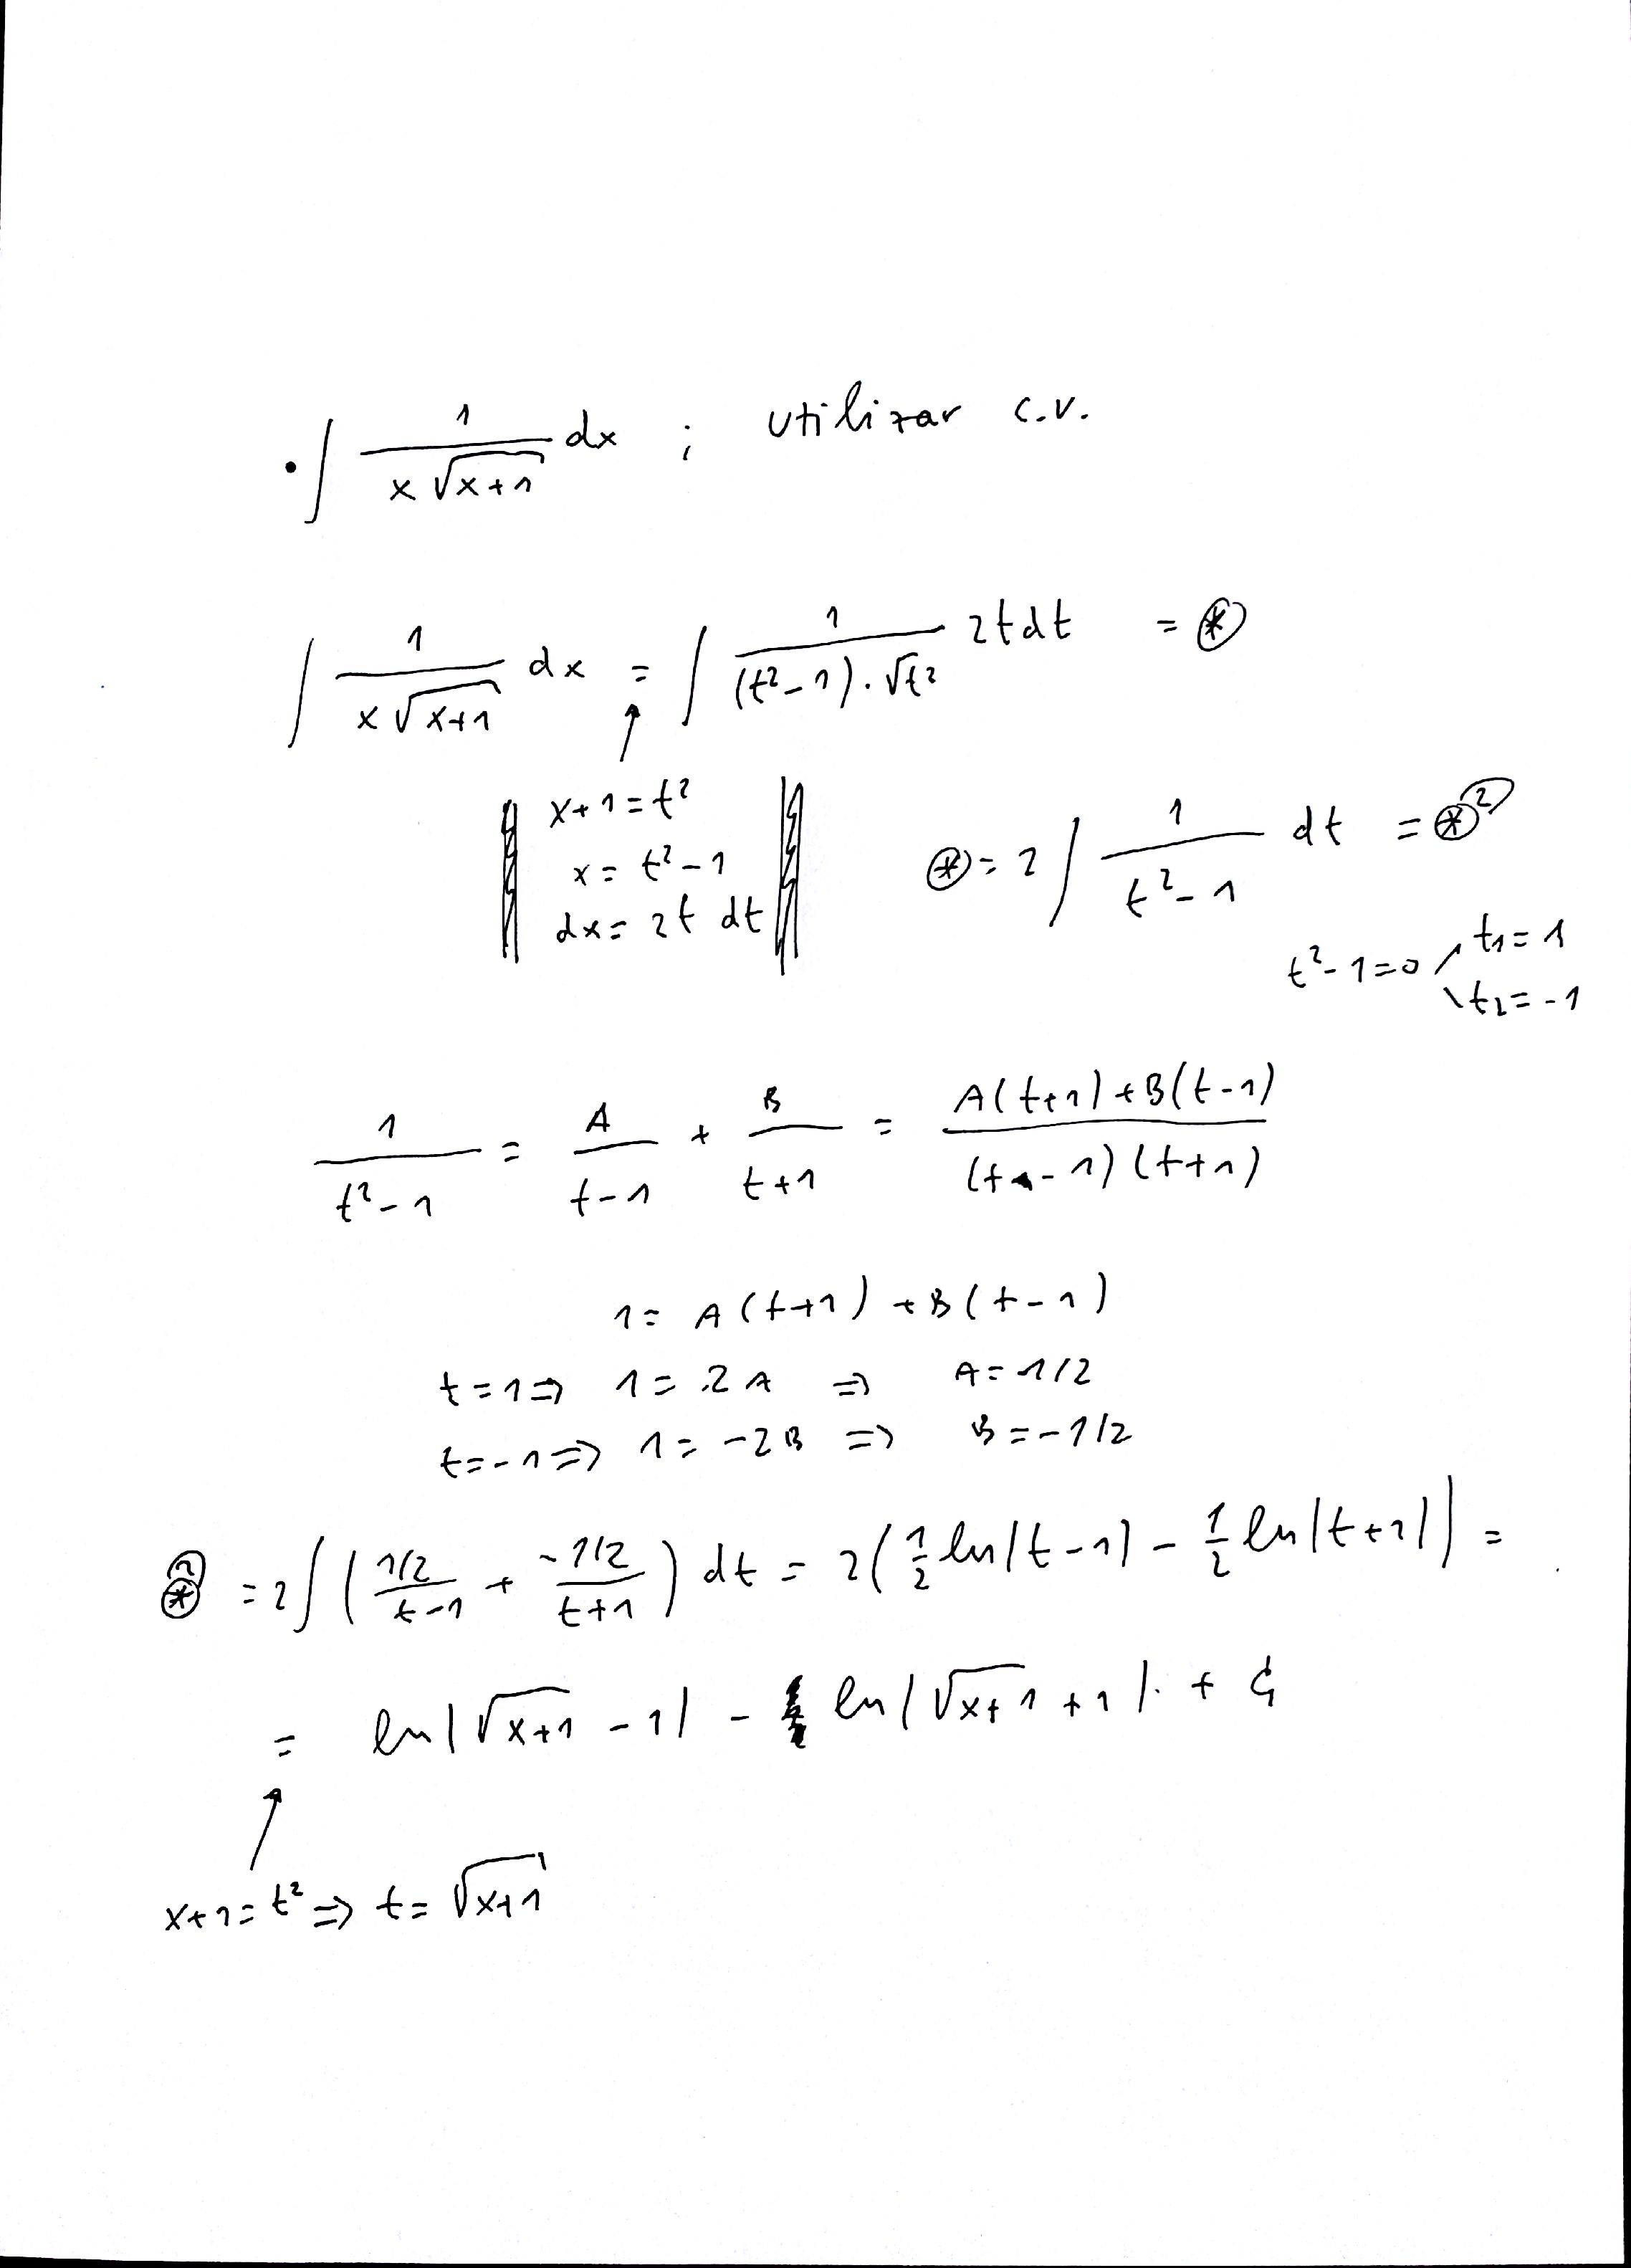 • ∫ 1/(x√(x+1)) dx ; utilizar c.v.
∫ 1/(x√(x+1)) dx = ∫ 1/((t²-1)·√t²) 2t dt = ⊛
x+1=t²
x=t²-1
dx=2t dt
⊛ = 2∫ 1/(t²-1) dt = ⊛²
t²-1=0 t₁=1
t₂=-1
1/(t²-1) = A/(t-1) + B/(t+1) = (A(t+1)+B(t-1))/((t-1)(t+1))
1 = A(t+1)+B(t-1)
t=1 ⇒ 1=2A ⇒ A=1/2
t=-1 ⇒ 1=-2B ⇒ B=-1/2
⊛² = 2∫((1/2)/(t-1) + (-1/2)/(t+1)) dt = 2(1/2 ln|t-1| - 1/2 ln|t+1|) =
= ln|√(x+1) -1| - ln|√(x+1) +1| + C
x+1=t² ⇒ t=√(x+1)